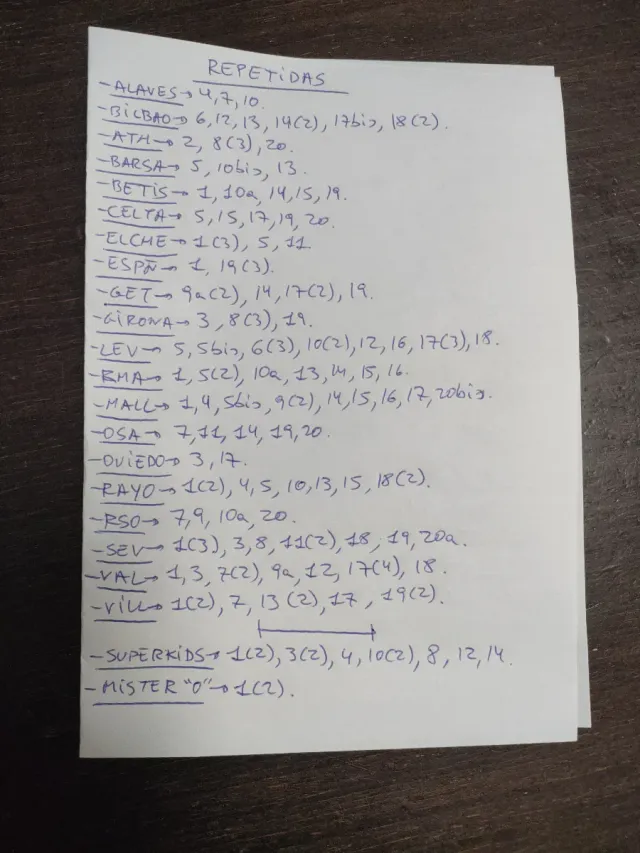 REPETIDAS
-ALAVES→ 4,7,10.
-BILBAO→ 6,12,13,14(2),17bis,18(2).
-ATH→ 2, 8(3),20.
-BARSA→ 5, 10bis, 13.
-BETIS→ 1, 10a, 14,15, 19.
-CELTA→ 5,15,17,19,20.
-ELCHE→ 1(3), 5, 11.
-ESPÑ→ 1, 19(3).
-GET→ 9a(2), 14,17(2),19.
-GIRONA→ 3, 8(3),19.
-LEV→ 5,5bis,6(3),10(2),12,16,17(3),18.
-RMA→ 1,5(2), 10a, 13,14, 15,16.
-MALL→ 1,4,5bis,9(2),14,15,16,17,20bis.
-OSA→ 7,11,14,19,20.
-OVIEDO→ 3,17.
-RAYO→ 1(2),4,5, 10,13,15,18(2).
-RSO→ 7,9, 10a, 20.
-SEV→ 1(3), 3,8, 11(2), 18, 19,20a.
-VAL→ 1,3, 7(2), 9a, 12, 17(4), 18.
-VILL→ 1(2), 7, 13(2), 17, 19(2).
-SUPERKIDS→ 1(2), 3(2), 4, 10(2), 8, 12, 14.
-MISTER "0"→ 1(2).